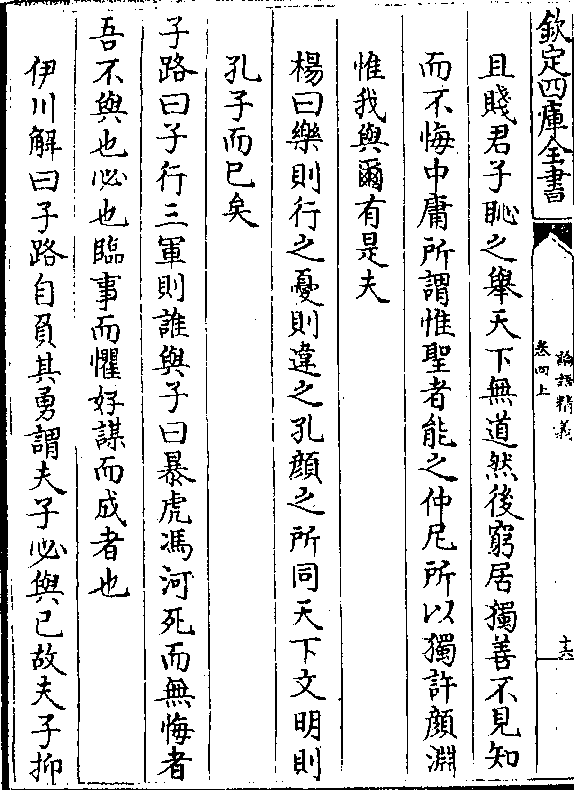 欽定四庫全書
論語精義
卷四上
十六
且賤君子恥之舉天下無道然後窮居獨善不見知
而不悔中庸所謂惟聖者能之仲尼所以獨許顏淵
惟我與爾有是夫
楊曰樂則行之憂則違之孔顔之所同天下文明則
孔子而已矣
子路曰子行三軍則誰與子曰暴虎馮河死而無悔者
吾不與也必也臨事而懼好謀而成者也
伊川解曰子路自負其勇謂夫子必與已故夫子抑